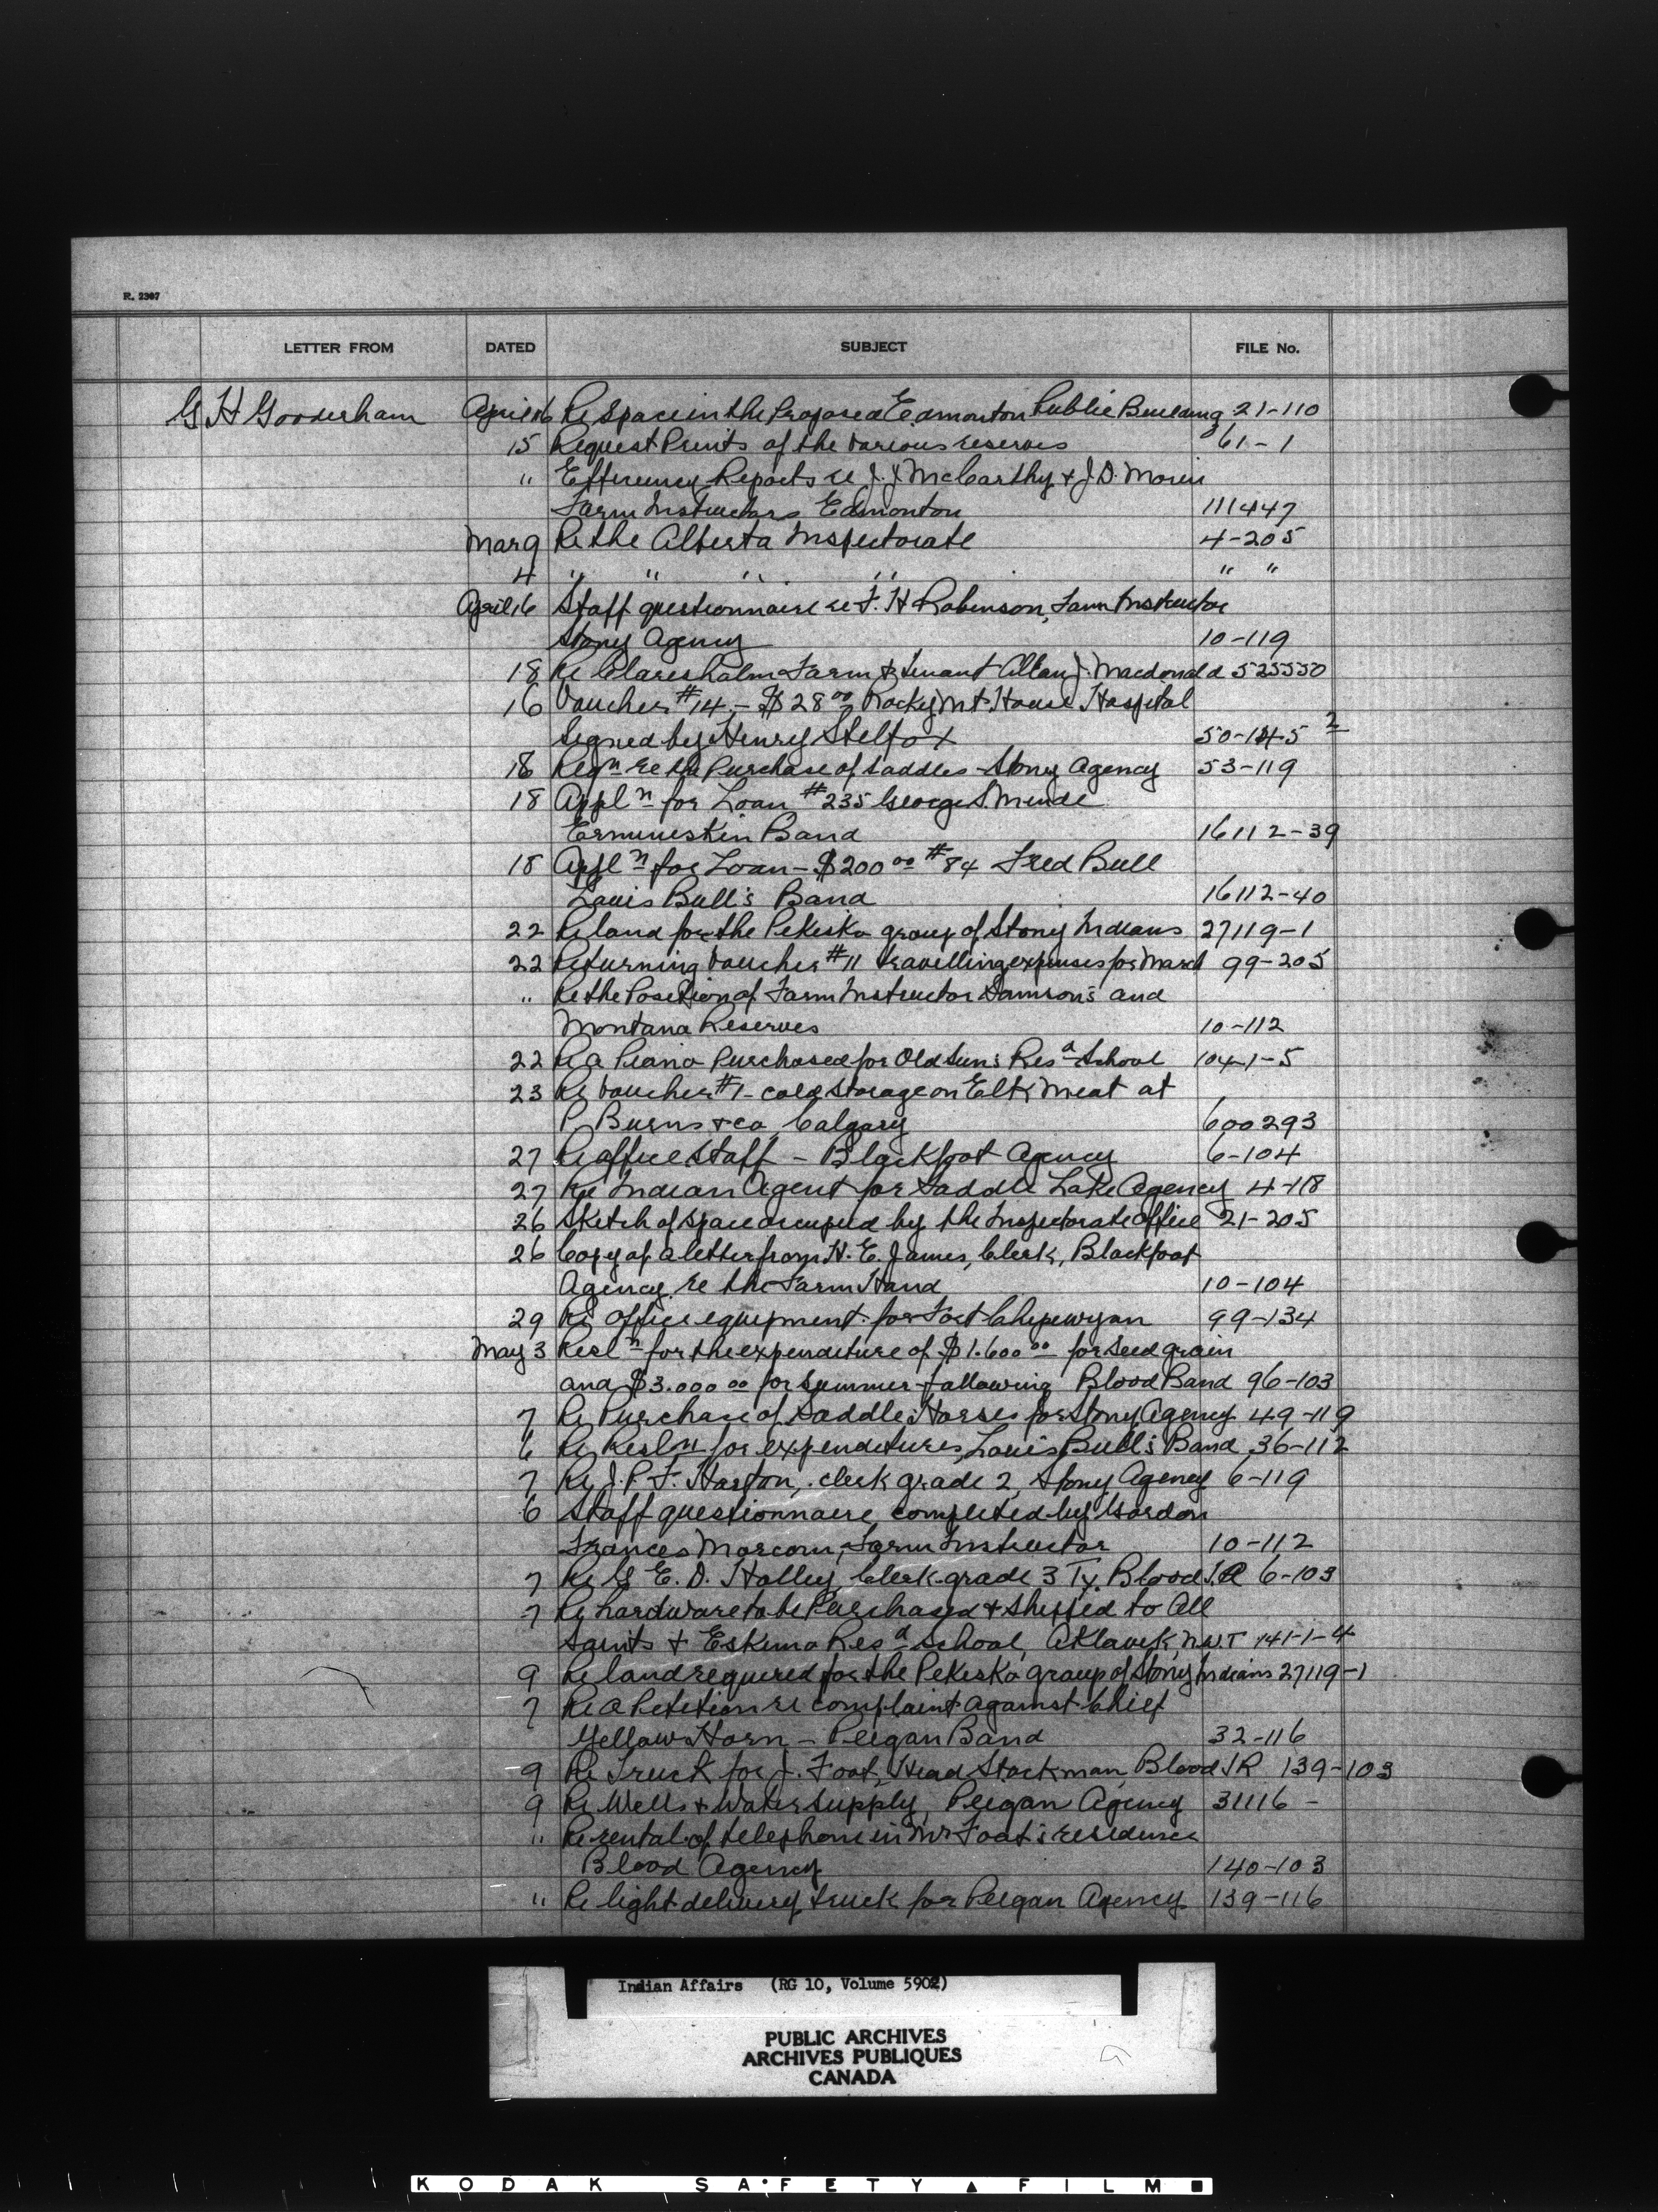 R. 2307
LETTER FROM DATED SUBJECT FILE No.
G H Gooderham April 16 Re Space in the Proposed Edmonton Public Building 21-110
15 Request Prints of the various reserves 61-1
" Efficiency Reports re J. J McCarthy & J. D. Morin
Farm Instructors Edmonton 111447
Mar 9 Re the Alberta Inspectorate 4-205
4 " " " " " "
April 16 Staff questionnaire re F. H Robinson, Farm Instructor
Stony Agency 10-119
18 Re Claresholm Farm & tenant Allan J. Macdonald 525550
16 Voucher #14 - $28 00 Rocky Mt. House Hospital
Signed by Henry Stelfox 50-145 2
18 Reqn re the Purchase of Saddles - Stony Agency 53-119
18 Appln for Loan #235 George S. Minde
Ermineskin Band 16112-39
18 Appln for Loan - $200 00 #84 Fred Bull
Louis Bull's Band 16112-40
22 Re land for the Pekisko group of Stony Indians 27119-1
22 Returning Voucher #11 travelling expenses for March 99-205
" Re the Position of Farm Instructor Samson's and
Montana Reserves 10-112
22 Re a Piano Purchased for Old Sun's Resd School 104-1-5
23 Re Voucher #1 - cold storage on Elk Meat at
P Burns & co Calgary 600293
27 Re office staff - Blackfoot Agency 6-104
27 Re Indian Agent for Saddle Lake Agency 4-118
26 Sketch of space occupied by the Inspectorate office 21-205
26 Copy of a letter from H. E. James, Clerk, Blackfoot
Agency, re the Farm Hand 10-104
29 Re office equipment for Fort Chipewyan 99-134
May 3 Resln for the expenditure of $1.600 00 for seed grain
and $3.000 00 for summer-fallowing Blood Band 96-103
7 Re Purchase of Saddle Horses for Stony Agency 49-119
6 Re Resln for expenditures, Louis Bull's Band 36-112
7 Re J. P. F. Harton, clerk grade 2, Stony Agency 6-119
6 Staff questionnaire completed by Gordon
Frances Morcom, Farm Instructor 10-112
7 Re G E. D. Holley, Clerk grade 3 Ty. Blood I.A 6-103
7 Re hardware to be Purchased & Shipped to All
Saints & Eskimo Resd School, Aklavik, N.W.T 141-1-4
9 Re land required for the Pekisko group of Stony Indians 27119-1
7 Re a Petition re complaint against Chief
Yellow Horn - Peigan Band 32-116
9 Re Truck for J. Foat, Head Stockman, Blood IR 139-103
9 Re Wells & Water supply, Peigan Agency 31116 -
" Re rental of telephone in Mr Foat's residence
Blood Agency 140-103
" Re light delivery truck for Peigan Agency 139-116
Indian Affairs (RG 10, Volume 5902)
PUBLIC ARCHIVES
ARCHIVES PUBLIQUES
CANADA
KODAK SAFETY FILM